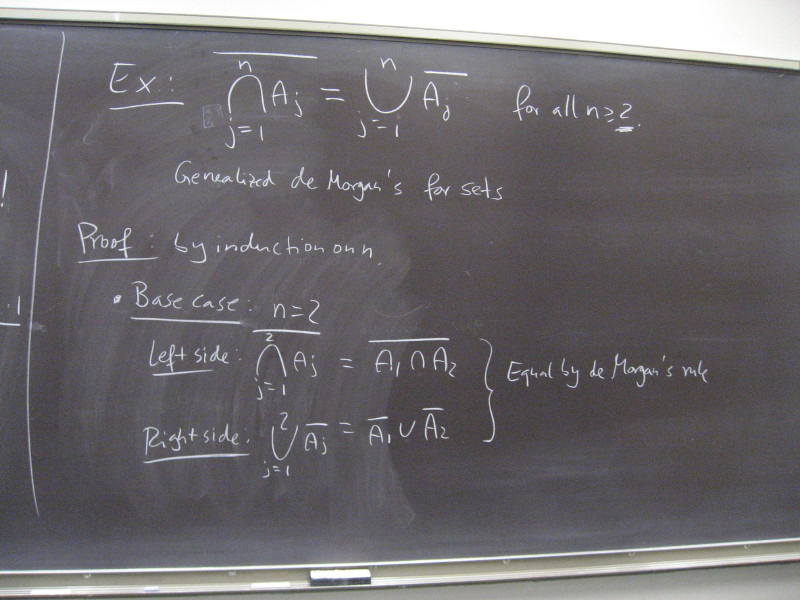 Ex: $\overline{\bigcap_{j=1}^{n} A_j} = \bigcup_{j=1}^{n} \overline{A_j}$ for all n ≥ 2.
Genealized de Morgan's for sets
Proof: by induction on n.
• Base case: n=2
Left side: $\overline{\bigcap_{j=1}^{2} A_j} = \overline{A_1 \cap A_2}$
Equal by de Morgan's rule
Right side: $\bigcup_{j=1}^{2} \overline{A_j} = \overline{A_1} \cup \overline{A_2}$
!
.1